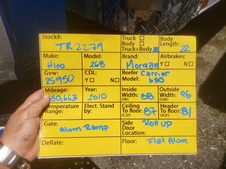 Stock#: Truck Body Length:
TR2279 Body 22
Truck+Body
Make: Model: Brand: Airbrakes:
Hino 268 Morgan Y N
Gvw: CDL: Reefer Carrier
25950 Y N Model: 650
Mileage: Year: Inside Width: Outside Width:
350,663 2010 88 96
Temperature Range: Elect. Stand by: Ceiling To floor: Header To floor:
87 81
Gate: Side Door Location:
Alum Ramp Roll up
DeRate: Floor:
Flat Alum